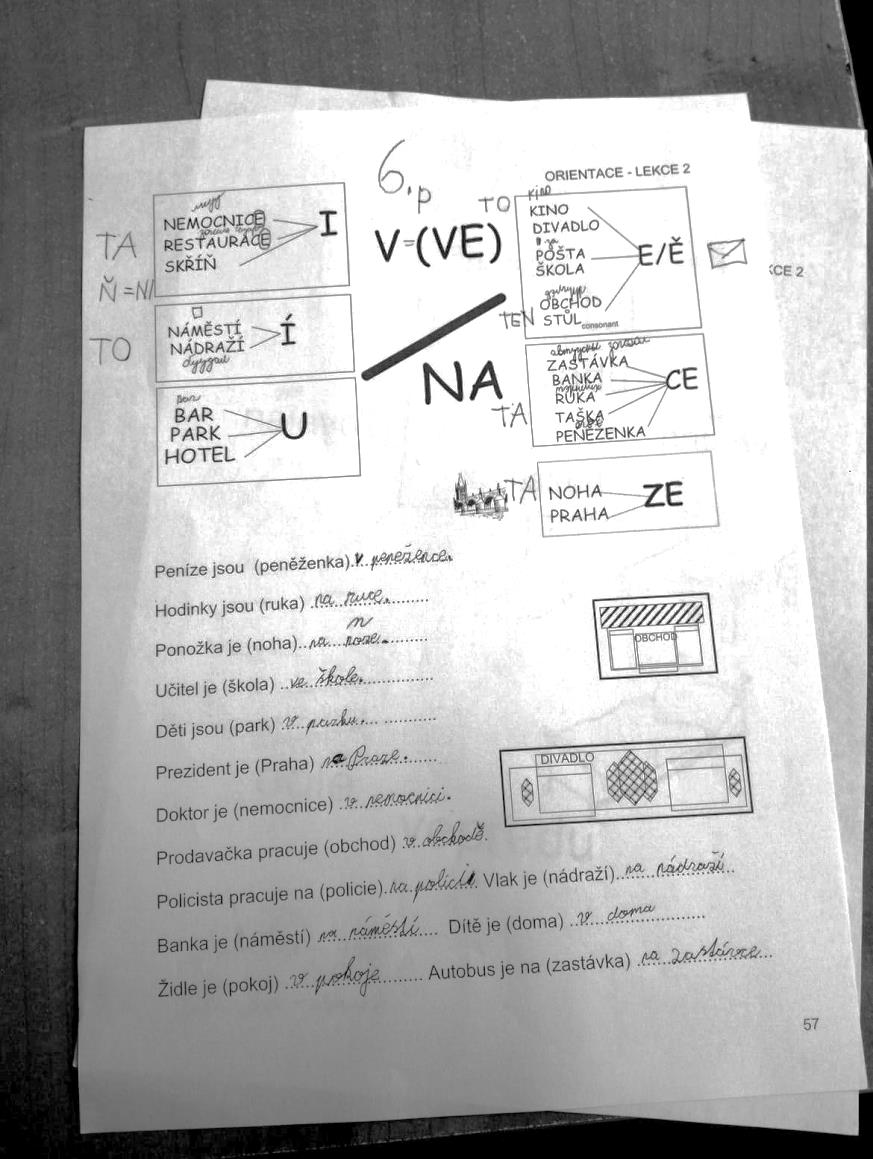 6.p
ORIENTACE - LEKCE 2
TA
NEMOCNICE
RESTAURACE
SKŘÍŇ
I
Ň =NI
V=(VE)
TO
KINO
DIVADLO
POŠTA
ŠKOLA
OBCHOD
TEN STŮL consonant
E/Ě
KCE 2
TO
NÁMĚSTÍ
NÁDRAŽÍ
Í
NA
TA
ZASTÁVKA
BANKA
RUKA
TAŠKA
PENĚŽENKA
CE
BAR
PARK
HOTEL
U
TA
NOHA
PRAHA
ZE
Peníze jsou (peněženka) v peněžence.
Hodinky jsou (ruka) na ruce.
Ponožka je (noha) na noze.
Učitel je (škola) ve škole.
Děti jsou (park) v parku.
Prezident je (Praha) na Praze.
Doktor je (nemocnice) v nemocnici.
Prodavačka pracuje (obchod) v obchodě.
Policista pracuje na (policie) na policii. Vlak je (nádraží) na nádraží
Banka je (náměstí) na náměstí Dítě je (doma) v doma
Židle je (pokoj) v pokoje Autobus je na (zastávka) na zastávce
OBCHOD
DIVADLO
57